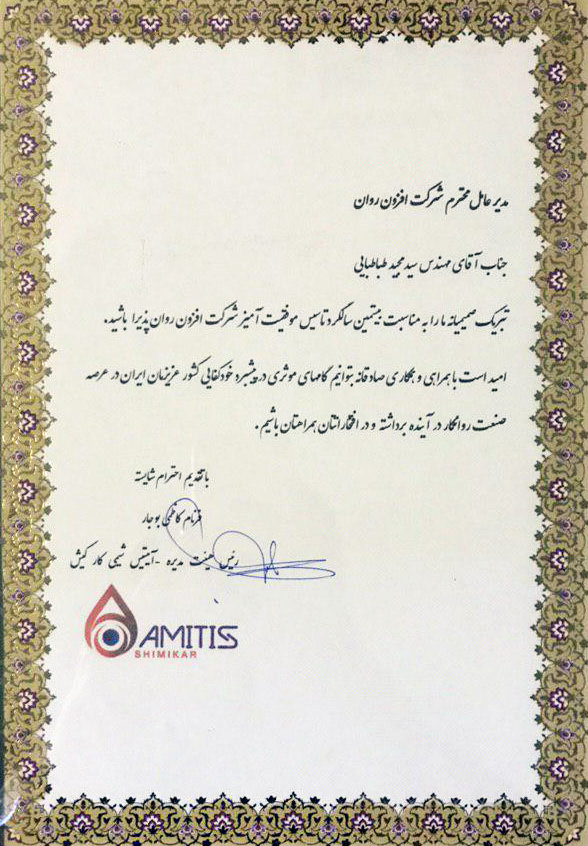 مدیر عامل محترم شرکت افزون روان
جناب آقای مهندس سید مجید طباطبایی
تبریک صمیمانه ما را به مناسبت بیستمین سالگرد تاسیس موفقیت آمیز شرکت افزون روان پذیرا باشید.
امید است با همراهی و همکاری صادقانه بتوانیم گامهای موثری در پیشبرد خودکفایی کشور عزیزمان ایران در عرصه
صنعت روانکار در آینده برداشته و در افتخاراتتان همراهتان باشیم.
با تقدیم احترام شایسته
فرنام کاظمی بوجار
رئیس هیئت مدیره - آمیتیس شیمی کار کیش
AMITIS
SHIMIKAR